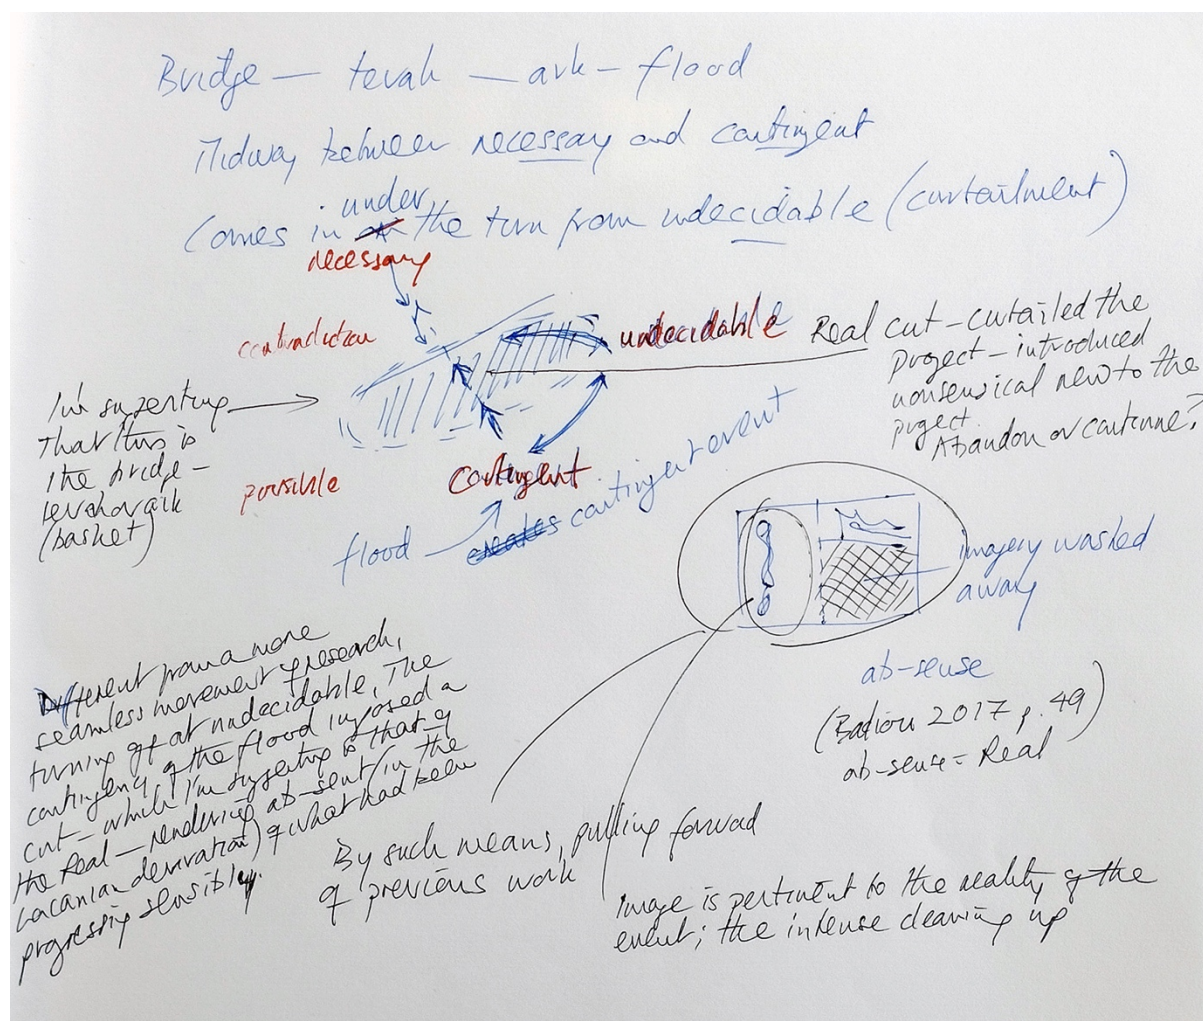 Bridge — tevah — ark — flood
Midway between necessary and contingent
under
Comes in the turn from undecidable (curtailment)
necessary
contradiction
undecidable
Real cut — curtailed the
project — introduced
nonsensical new to the
project.
Abandon or continue?
I'm suggesting
that this is
the bridge —
(basket)
possible
contingent
flood creates contingent event
imagery washed
away
ab-sense
(Badiou 2017 p. 49)
ab-sense = Real
Different from a more
seamless movement of research,
turning off at undecidable, the
contingency of the flood imposed a
cut — which I'm suggesting is that of
the Real — rendering ab-sent (in the
Lacanian derivation) of what had been
progressing sensibly.
By such means, pulling forward
of previous work
Image is pertinent to the reality of the
event; the intense cleaning up